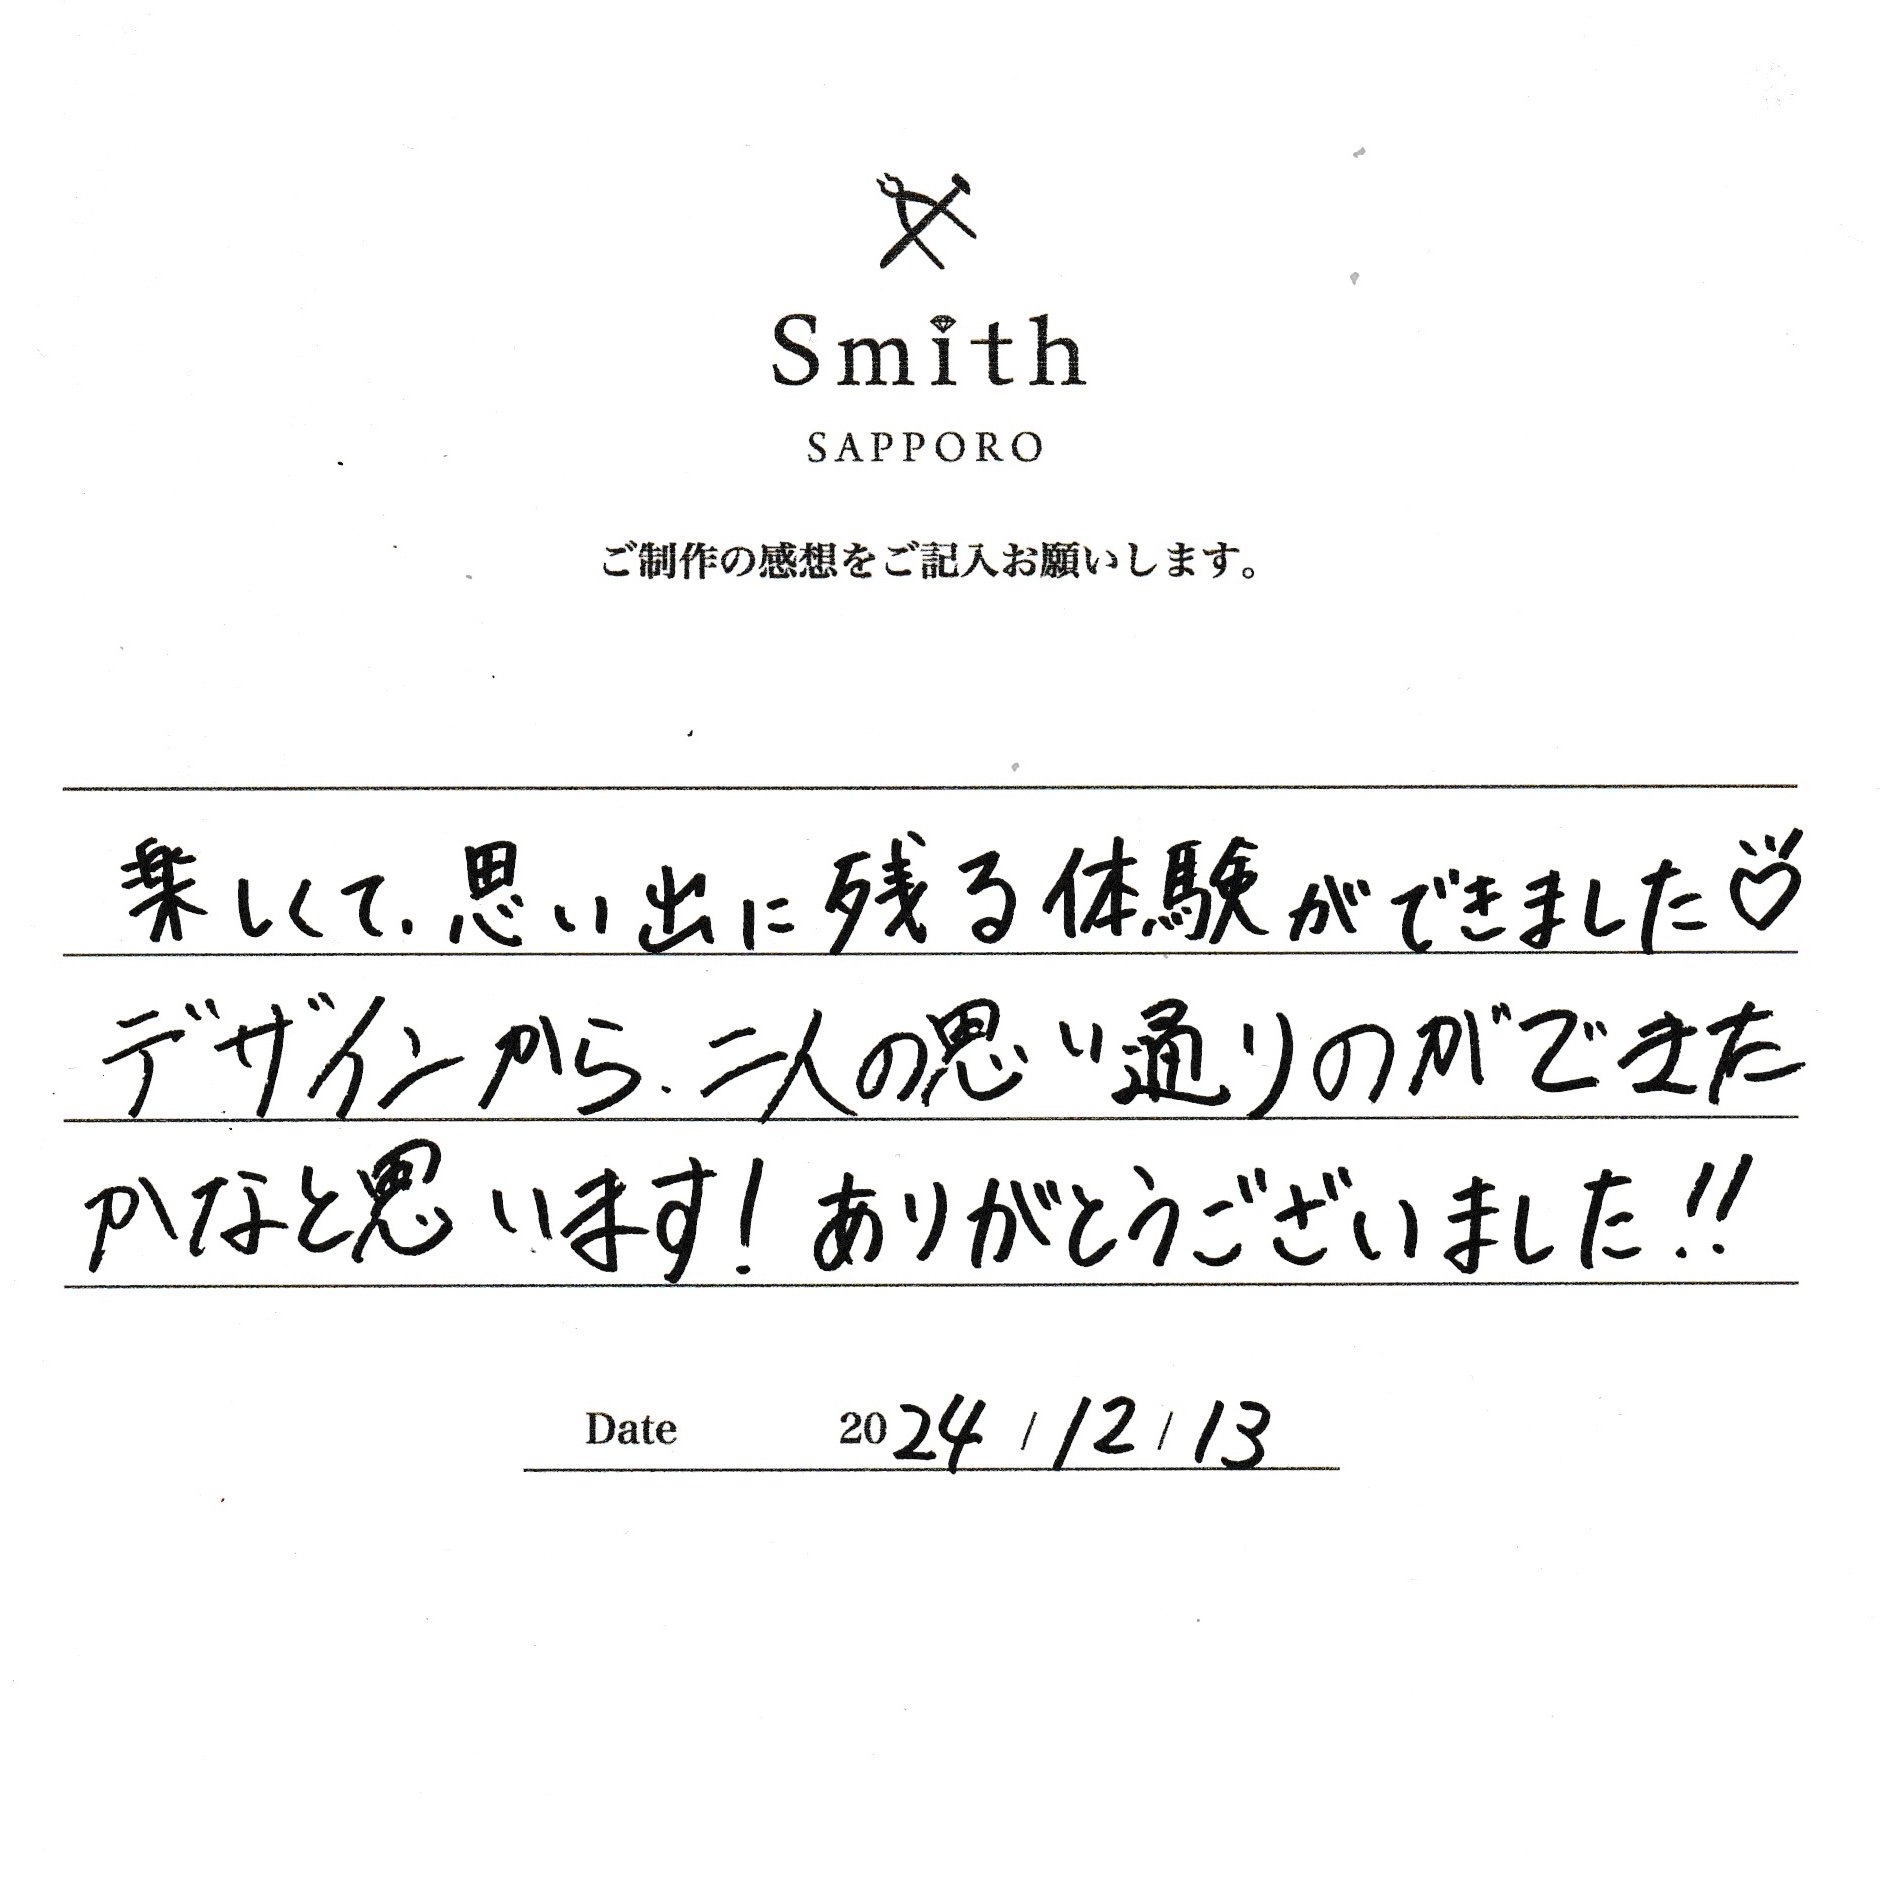 Smith
SAPPORO
ご制作の感想をご記入お願いします。
楽しくて、思い出に残る体験ができました♡
デザインから、二人の思い通りのができた
かなと思います！ありがとうございました!!
Date 2024/12/13